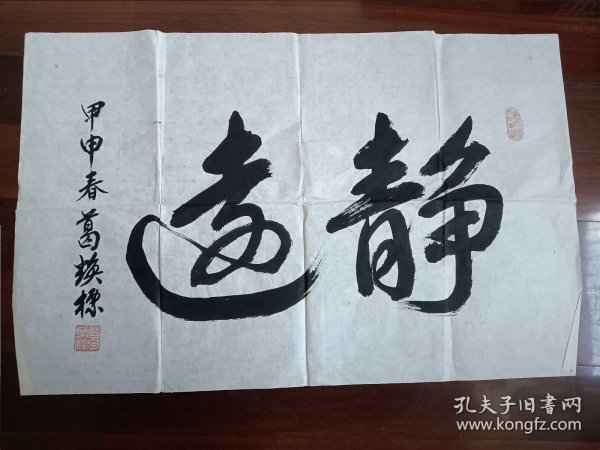 静远
甲申春葛焕标
孔夫子旧书网
www.kongfz.com